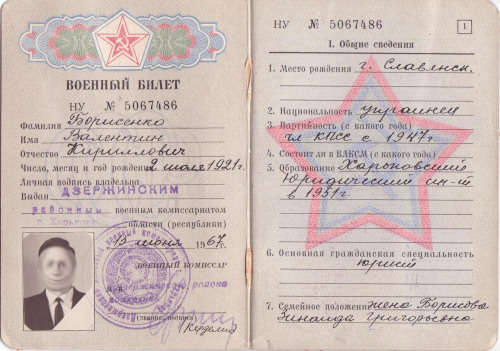 ВОЕННЫЙ БИЛЕТ
НУ № 5067486
Фамилия Борисенко
Имя Валентин
Отчество Кириллович
Число, месяц и год рождения 2 июля 1921 г.
Личная подпись владельца
Выдан ДЗЕРЖИНСКИМ
районным военным комиссариатом
г. Харькова области (республики)
13 июня 1967 г.
военный комиссар
района
НУ № 5067486 1
I. Общие сведения
1. Место рождения г. Славянск
2. Национальность украинец
3. Партийность (с какого года)
чл КПСС с 1947 г.
4. Состоит ли в ВЛКСМ (с какого года)
5. Образование Харьковский
Юридический ин-т
в 1951 г
6. Основная гражданская специальность
юрист
7. Семейное положение жена Борисова
Зинаида Григорьевна